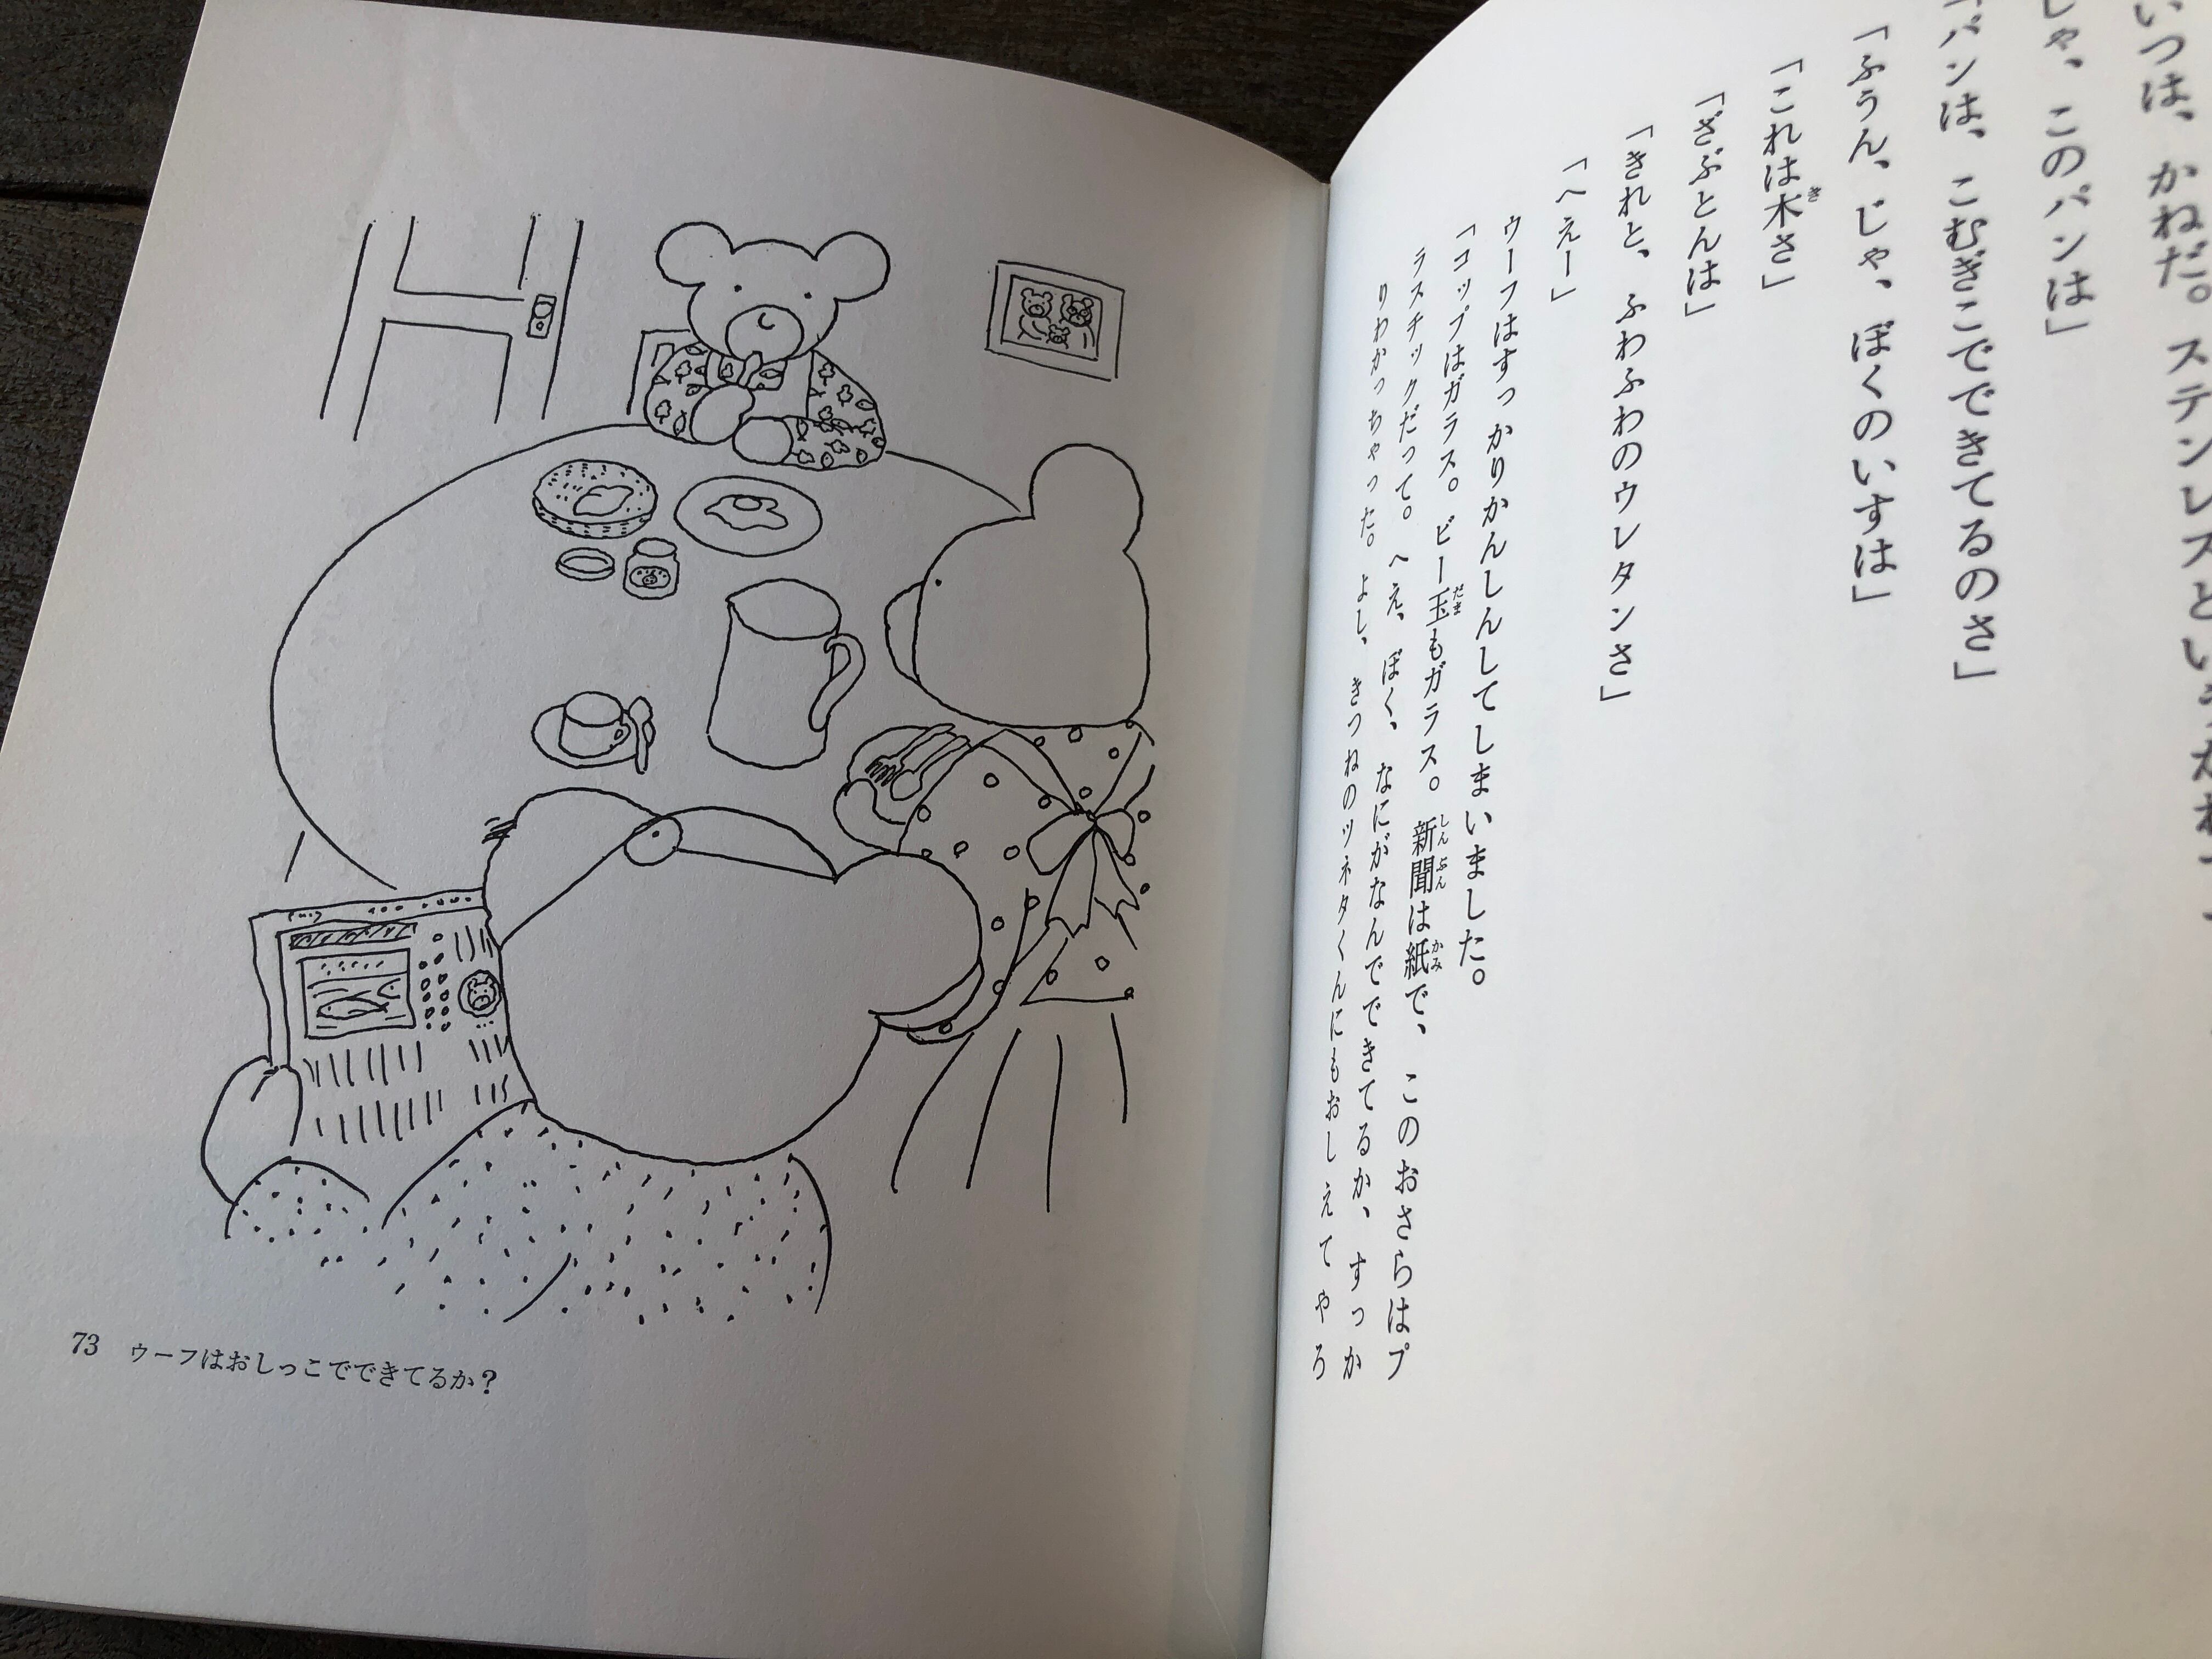 いつは、かねだ。ステンレスという
じゃ、このパンは」
「パンは、こむぎこでできてるのさ」
「ふうん、じゃ、ぼくのいすは」
「これは木さ」
「ざぶとんは」
「きれと、ふわふわのウレタンさ」
「へえー」
ウーフはすっかりかんしんしてしまいました。
「コップはガラス。ビー玉もガラス。新聞は紙で、このおさらはプ
ラスチックだって。へえ、ぼく、なにがなんでできてるか、すっか
りわかっちゃった。よし、きつねのツネタくんにもおしえてやろ
73 ウーフはおしっこでできてるか？